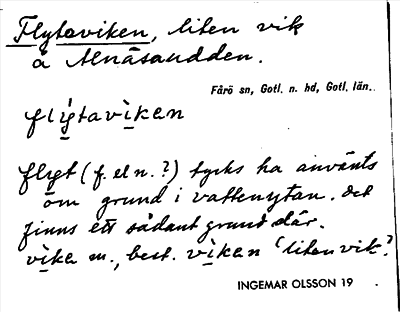 Flytaviken, liten vik
å Alnäsaudden.
Fårö sn, Gotl. n. hd, Gotl. län.
flytaviken
flyt (f. el n.?) tycks ha använts
om grund i vattenytan. Det
finns ett sådant grund där.
vika m., best. viken 'liten vik'?
INGEMAR OLSSON 19